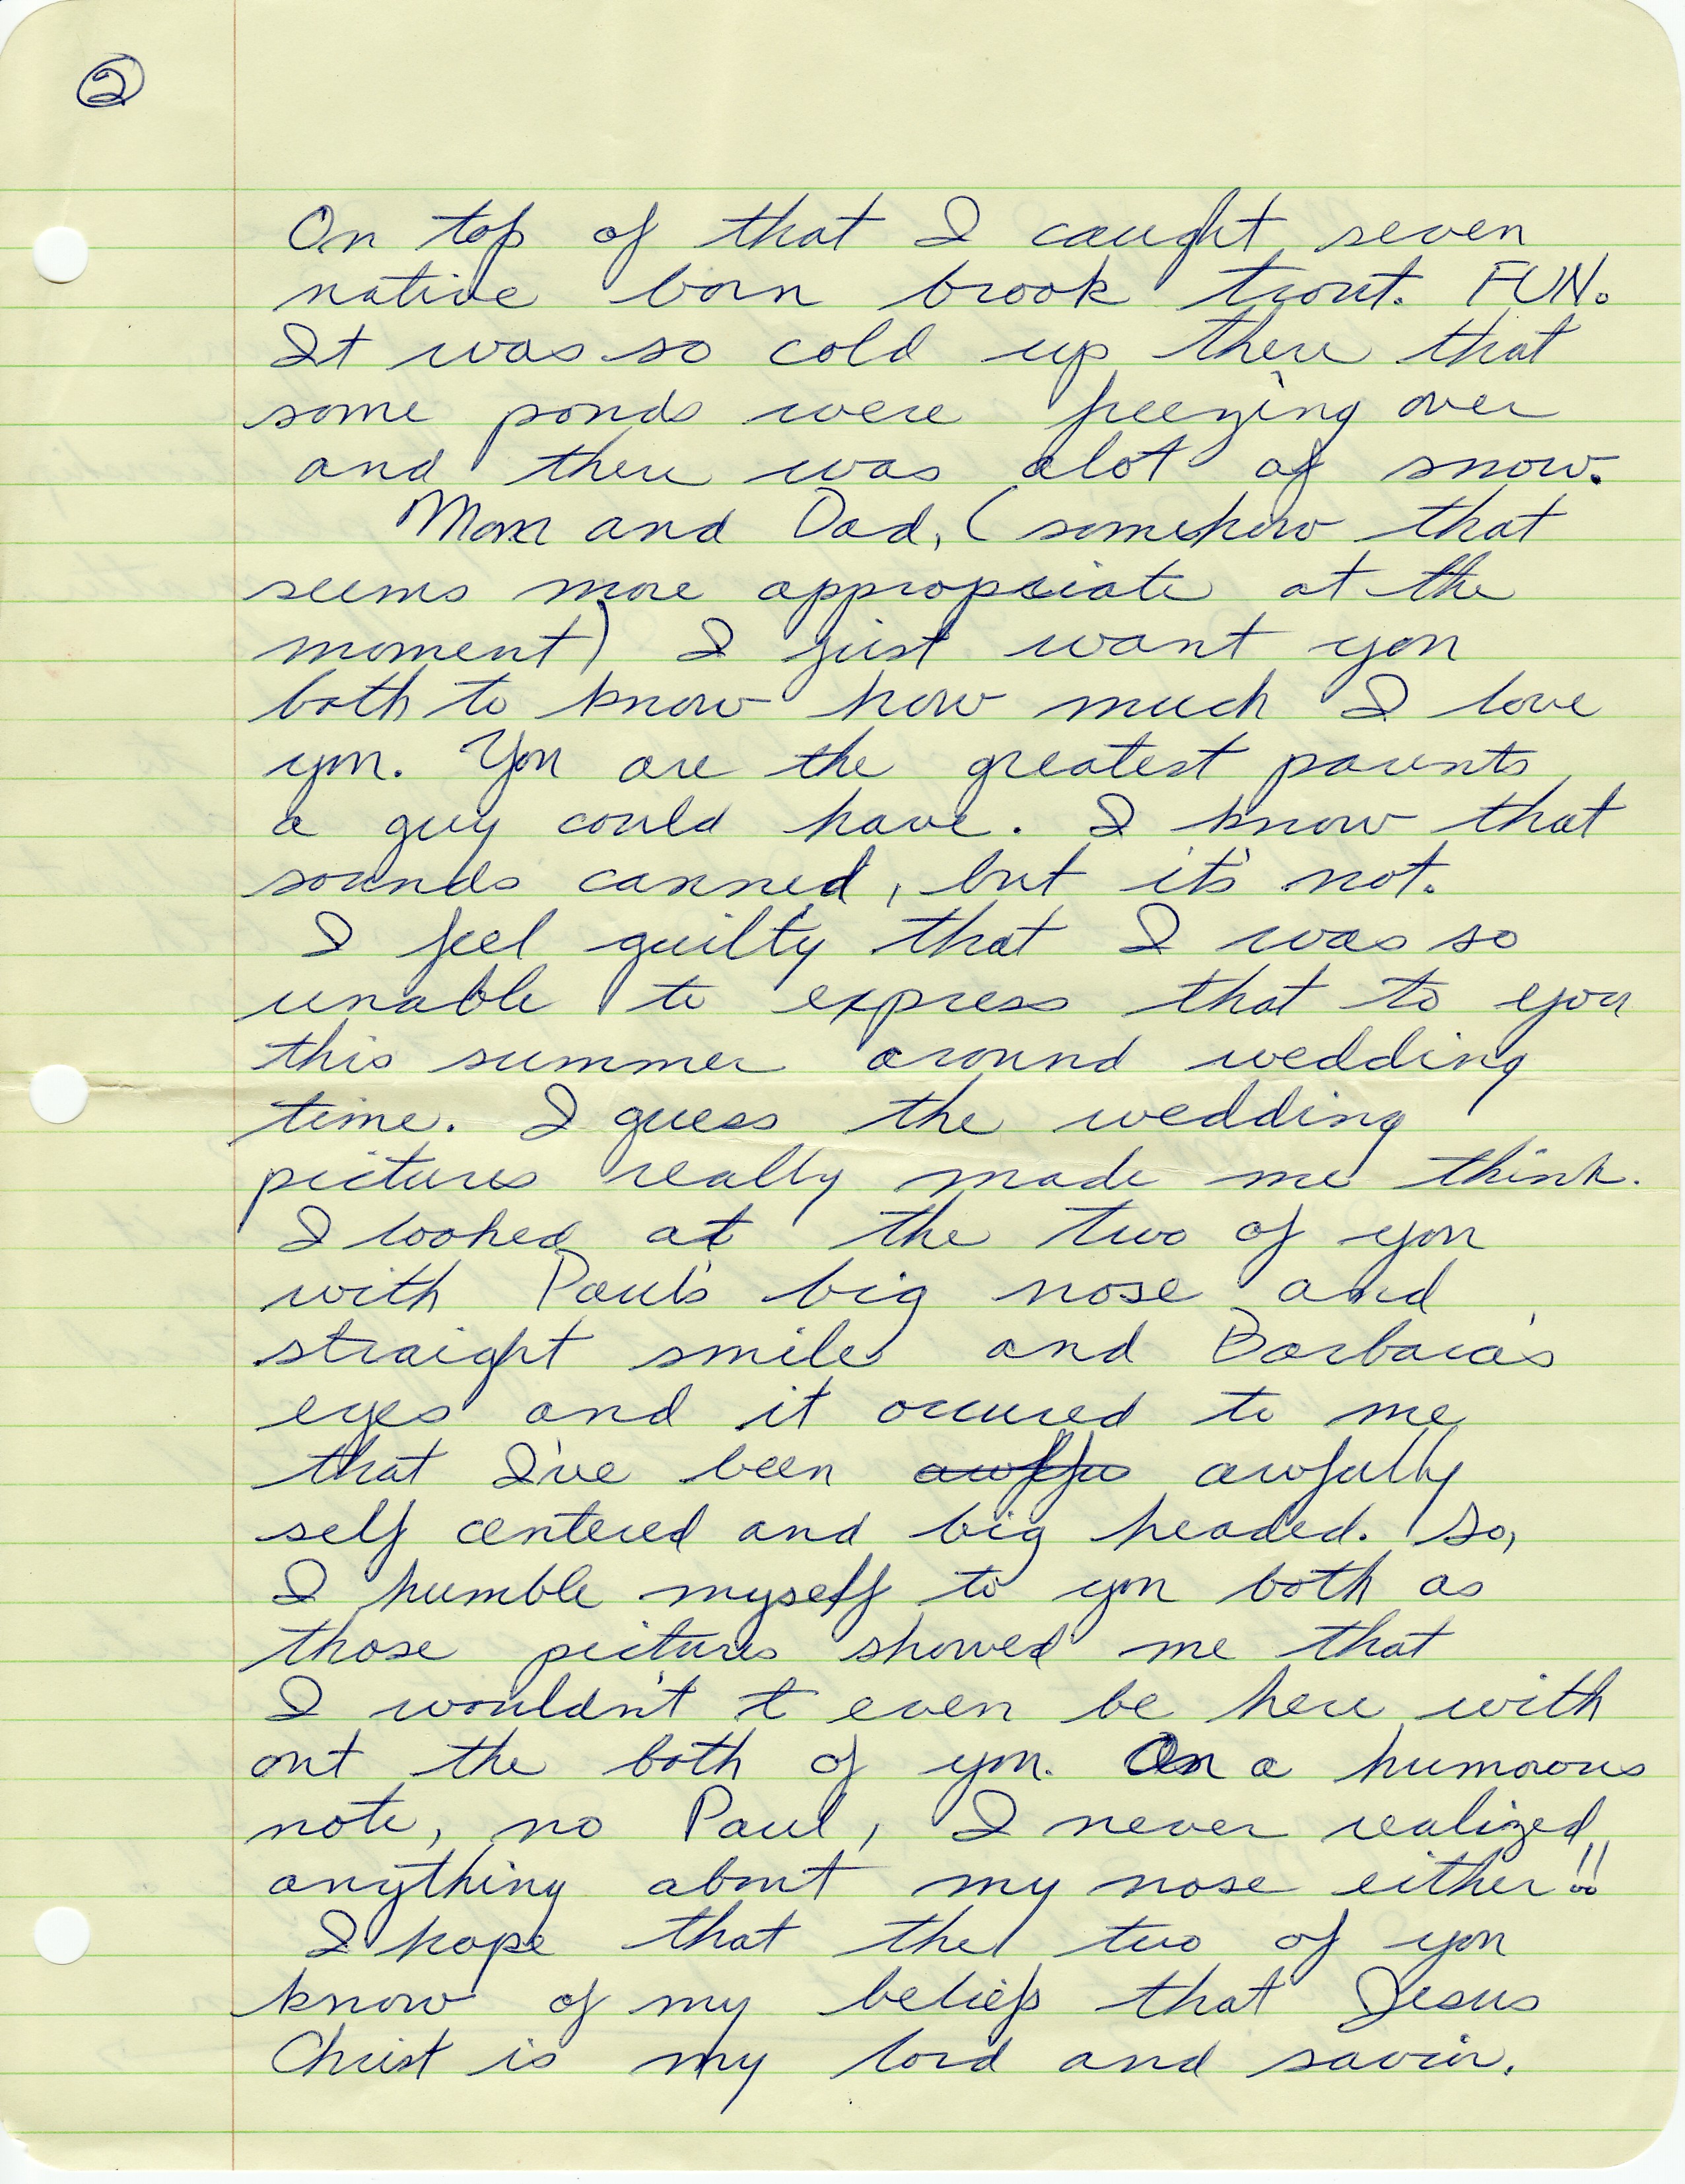 2
On top of that I caught seven
native born brook trout. FUN.
It was so cold up there that
some ponds were freezing over
and there was alot of snow.
Mom and Dad, (somehow that
seems more appropriate at the
moment) I just want you
both to know how much I love
you. You are the greatest parents
a guy could have. I know that
sounds canned, but it's not.
I feel guilty that I was so
unable to express that to you
this summer around wedding
time. I guess the wedding
pictures really made me think.
I looked at the two of you
with Paul's big nose and
straight smile and Barbara's
eyes and it occured to me
that I've been awfully
self centered and big headed. So,
I humble myself to you both as
those pictures showed me that
I wouldn't t even be here with
out the both of you. On a humorous
note, no Paul, I never realized
anything about my nose either!!
I hope that the two of you
know of my beliefs that Jesus
Christ is my lord and savior.